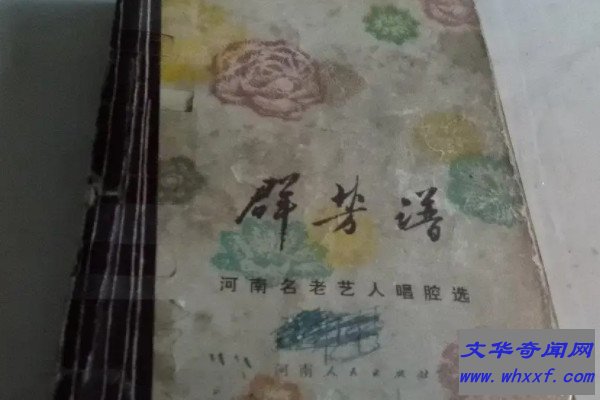 群芳谱
河南名老艺人唱腔选
河南人民出版社
文华奇闻网
www.whxxf.com